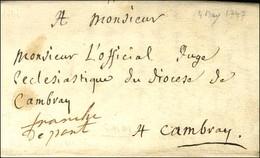 A Monsieur
4 May 1747
Monsieur L'official Juge
Ecclesiastique du Diocese de
Cambray
franche
De port
A Cambray.